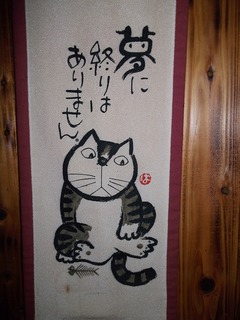 夢に
終りは
ありません。
は